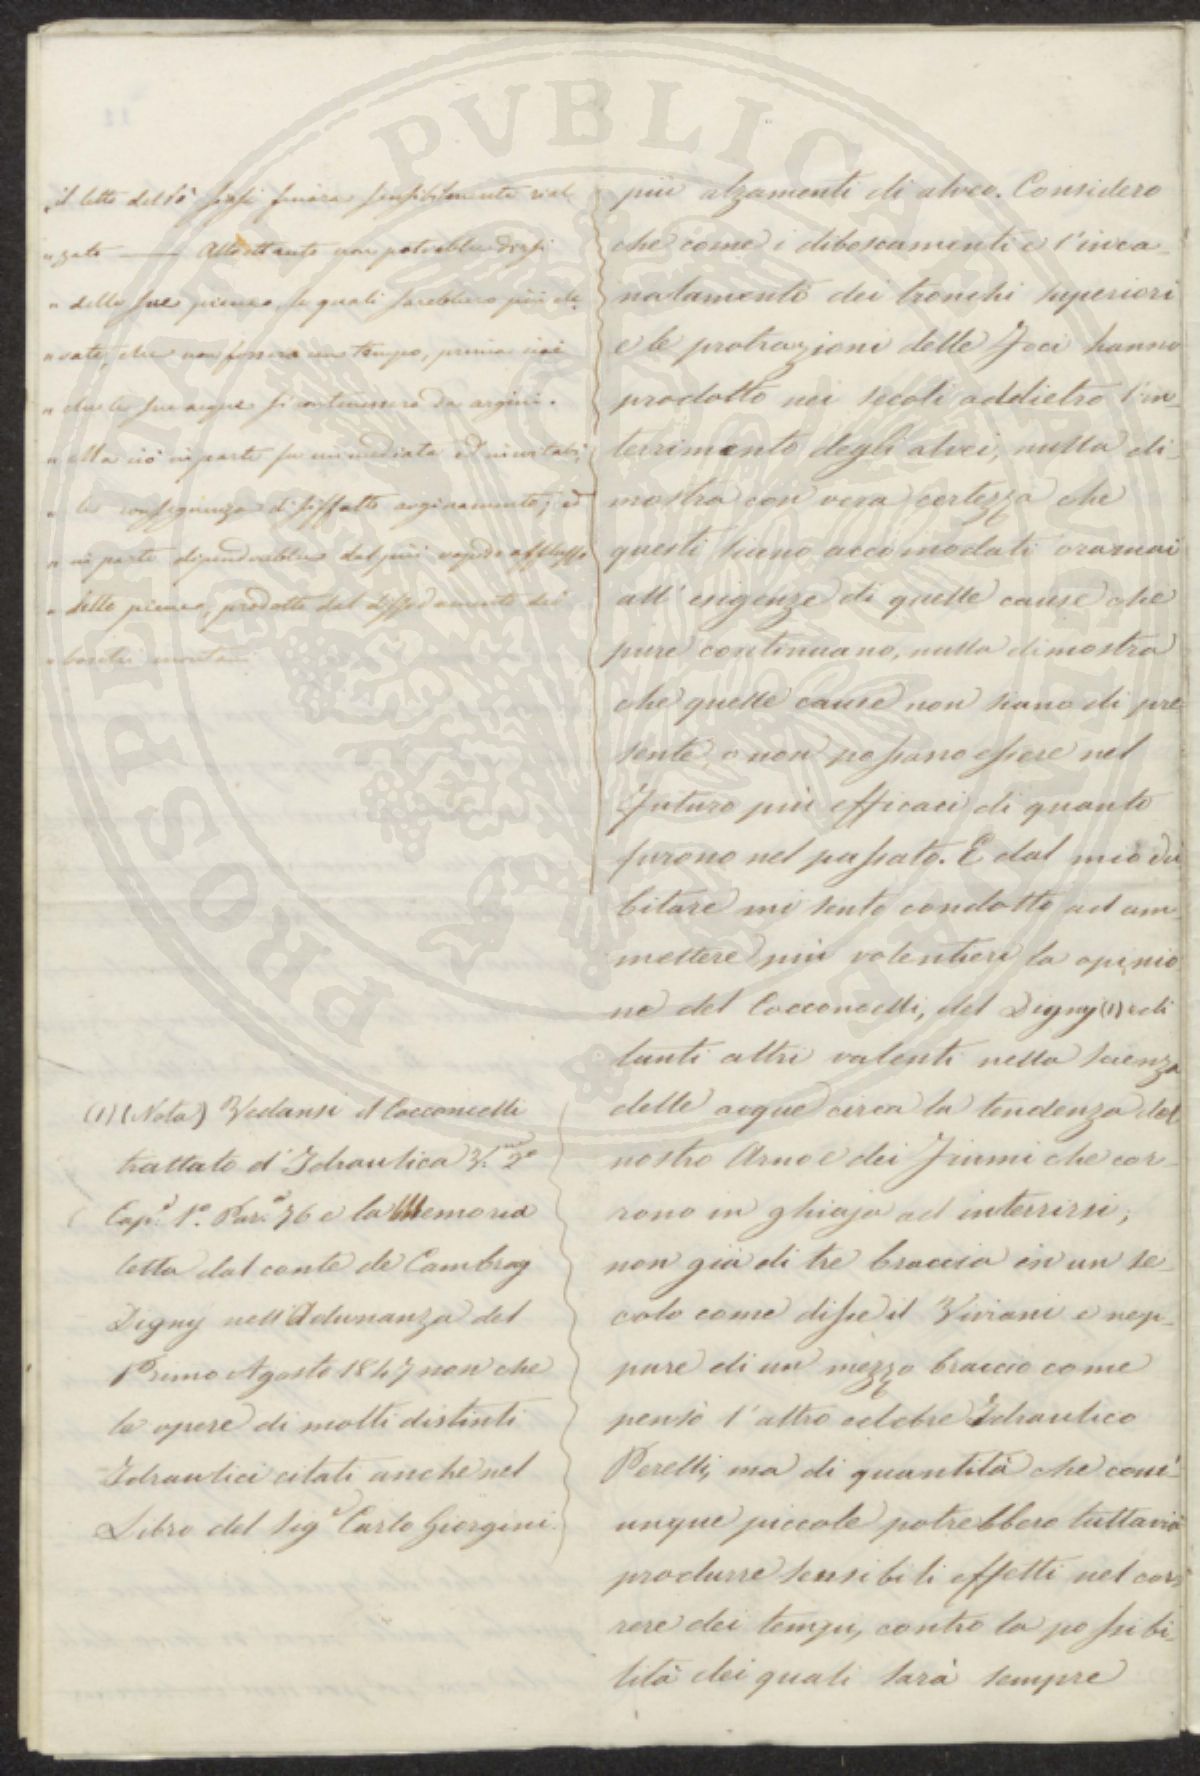 il letto del Pò siasi finora sensibilmente rial-
„ zato —— Altrettanto non potrebbe dirsi
„ delle sue piene, le quali sarebbero più ele-
„ vate, che non fossero un tempo, prima cioè
„ che le sue acque si contenessero da argini.
„ Ma ciò in parte fu immediata ed inevitabi-
„ le conseguenza di siffatto arginamento; ed
„ in parte dipenderebbe dal più rapido afflusso
„ delle piene, prodotto dal dissodamento dei
„ boschi montani
più alzamenti di alveo. Considero
che come i diboscamenti e l'inca-
nalamento dei tronchi superiori
e le protrazioni delle Foci hanno
prodotto nei secoli addietro l'in-
terrimento degli alvei, nulla di-
mostra con vera certezza che
questi siano accomodati oramai
all'esigenze di quelle cause che
pure continuano, nulla dimostra
che quelle cause non siano di pre
sente o non possano essere nel
futuro più efficaci di quanto
furono nel passato. E dal mio du
bitare mi sento condotto ad am-
mettere più volentieri la opinio
ne del Cocconcelli, del Digny (1) e di
tanti altri valenti nella scienza
delle acque circa la tendenza del
nostro Arno e dei Fiumi che cor-
rono in ghiaja ad interrirsi,
non già di tre braccia in un se-
colo come disse il Viviani e nep-
pure di un mezzo braccio come
pensò l'altro celebre Idraulico
Perelli, ma di quantità che com'
unque piccole potrebbero tuttavia
produrre sensibili effetti nel cor-
rere dei tempi, contro la possibi-
lità dei quali sarà sempre
(1) (Nota) Vedansi il Cocconcelli
trattato d'Idraulica V.me 2º
Cap.º 1º. Par.º 76 e la Memoria
letta dal conte de Cambray
Digny nell'Adunanza del
Primo Agosto 1847 non che
le opere di molti distinti
Idraulici citati anche nel
Libro del Sig.r Carlo Giorgini.
PROSPERITATI PVBLICAE